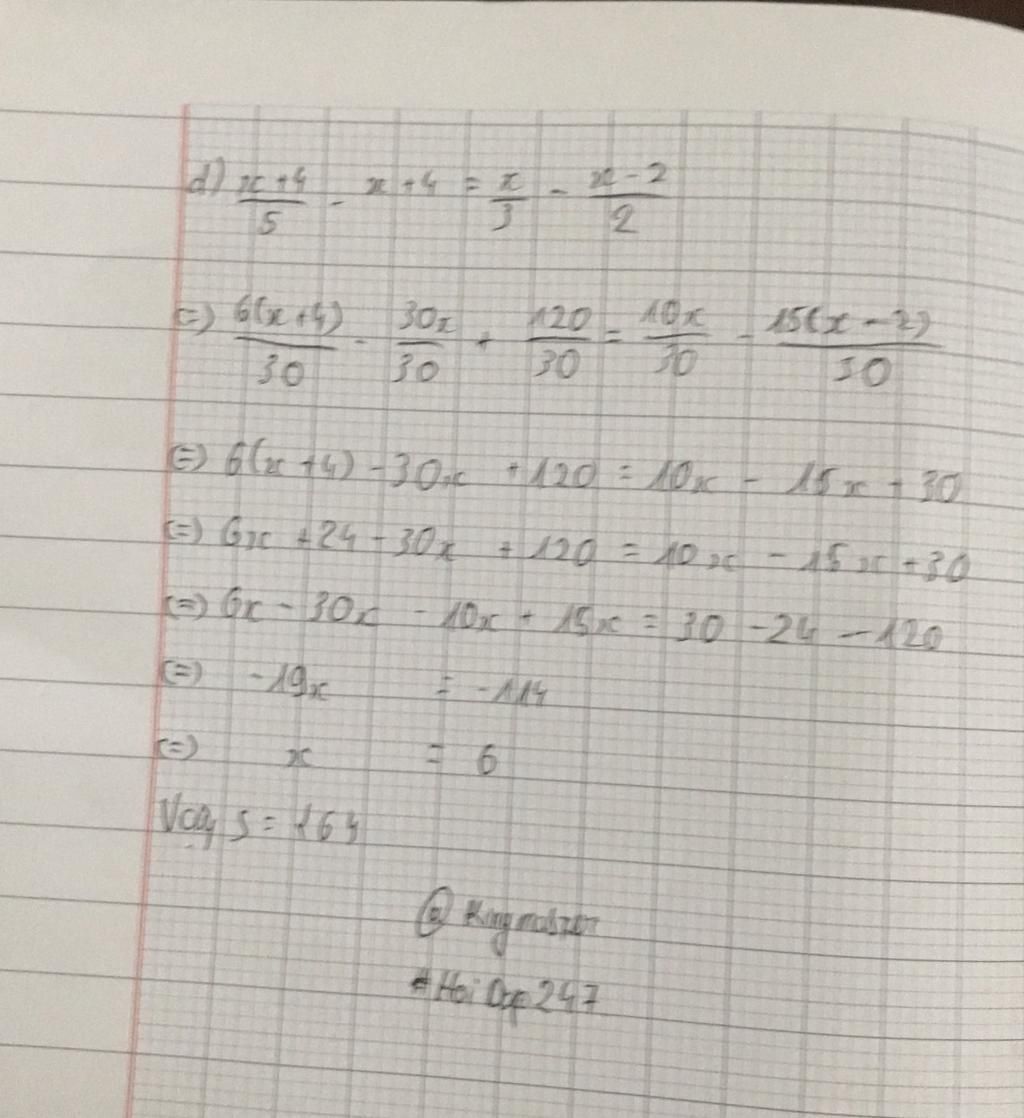 d) x+4/5 - x+4 = x/3 - x-2/2
(=) 6(x+4)/30 - 30x/30 + 120/30 = 10x/30 - 15(x-2)/30
(=) 6(x+4) - 30x + 120 = 10x - 15x + 30
(=) 6x + 24 - 30x + 120 = 10x - 15x + 30
(=) 6x - 30x - 10x + 15x = 30 - 24 - 120
(=) -19x = -114
(=) x = 6
Vậy S = {6}
#Hoi Dap 247